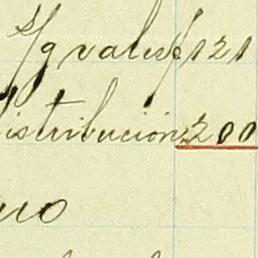 Yguales $ 121
istribucion $ 200
uo